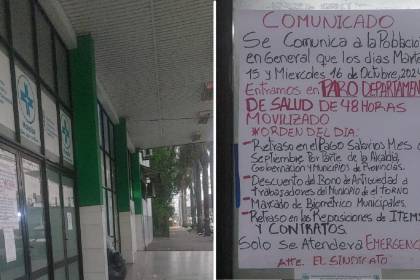 COMUNICADO
Se Comunica a la Població
en General que los dias Marte
15 y Miercoles 16 de Octubre, 2024
Entramos en PARO DEPARTAMEN
DE SALUD DE 48 HORAS
MOVILIZADO
*ORDEN DEL DIA:
-Retraso en el Pago Salarios Mes. d
Septiembre Por Parte de la Alcaldia,
Gobernación y Municipios de Provincias.
-Descuento del Bono de Antiguedad a
Trabajadores del Municipio de el TORNO
-Marcado de Biometrico Municipales.
-Retraso en las Reposiciones de ITEMS
Y CONTRATOS.
Solo se Atendera EMERGENC
Atte. EL SINDICATO